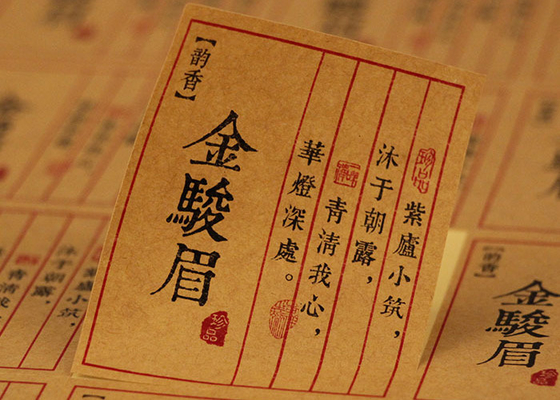 珍品
紫廬小筑，
沐于朝露，
青清我心，
華燈深處。
【韵香】
金駿眉
珍品
【韵香】
金駿眉
沐于朝露，